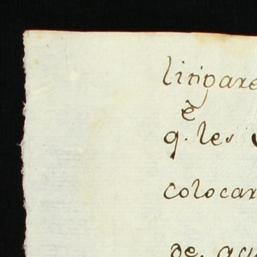 litigare
q. les
colocar
de. acu